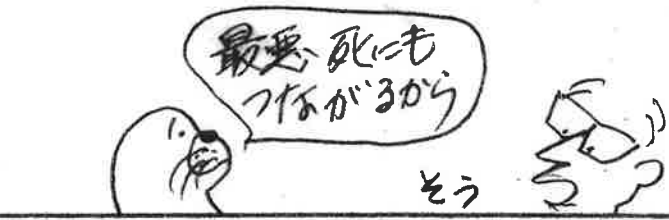 最悪、死にも
つながるから
そう